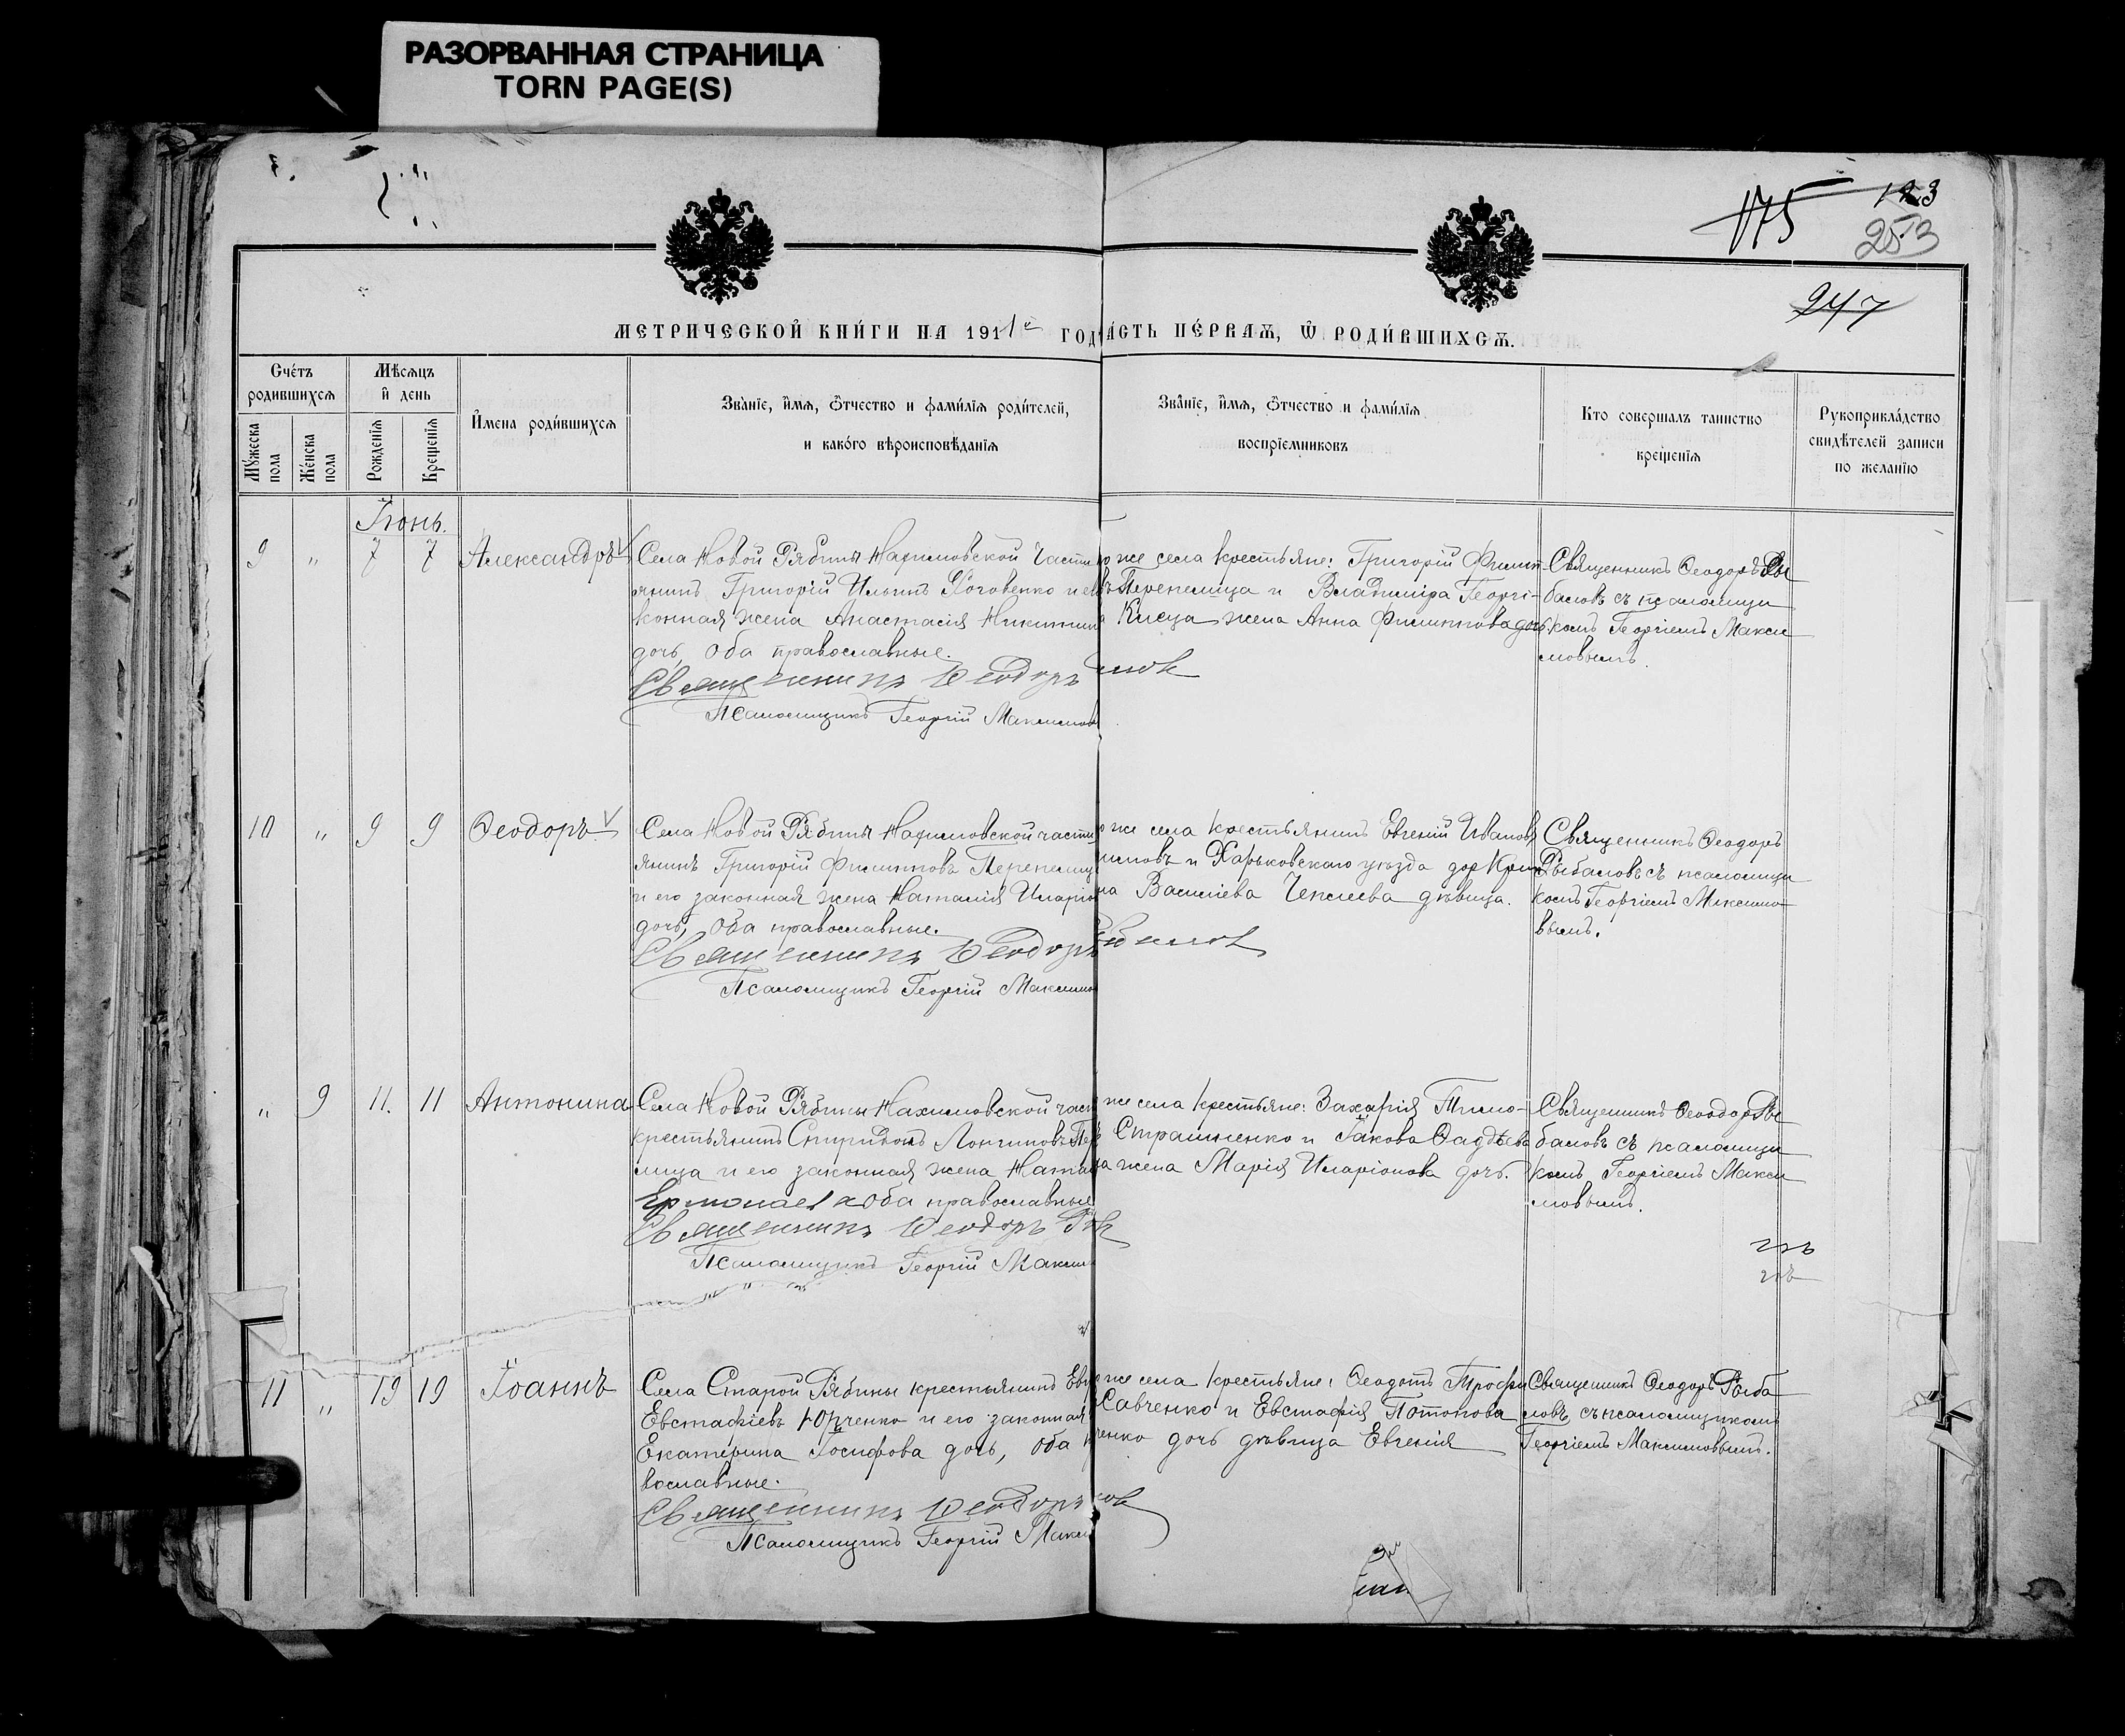 РАЗОРВАННАЯ СТРАНИЦА
TORN PAGE(S)
175
123
253
247
МЕТРИЧЕСКОЙ КНИ́ГИ НА 1911й ГОД
А́СТЬ ПЕ́РВАѦ, Ѡ҆ РОДИ́ВШИХСѦ.
Сче́тъ родившихсѧ
Мꙋ́жеска пола
Же́нска пола
Мѣ́сѧцъ и҆ день
Рожде́нїѧ
Креще́нїѧ
И҆мена роди́вшихсѧ
Зва́нїе, и҆́мѧ, ѻ҆́тчество и фами́лїѧ роди́телей,
и како́го вѣроисповѣ́данїѧ
Зва́нїе, и҆́мѧ, ѻ҆́тчество и фами́лїѧ
воспрїе́мниковъ
Кто соверша́лъ таинство
креще́нїѧ
Рукоприкла́дство
свидѣ́телей записи
по жела́нїю
Іюнь.
9 „ 7 7 Александръ
Села Новой Рябины Нахимовской части
янинъ Григорій Ильинъ
конная жена Анастасія Никитина
дочь, оба православные.
Священникъ Ѳеодоръ
Псаломщикъ Георгій Максимов
о же села крестьяне: Григорій Филип-
въ Перепелица и Владиміра Георгі-
Кисуа жена Анна Филиппова дочь
Священникъ Ѳеодоръ Ры
баловъ съ псаломщи
комъ Георгіемъ Макси
мовымъ.
10 „ 9 9 Ѳеодоръ
Села Новой Рябины Нахимовской части
янинъ Григорій Филиппова Перепелиц
и его законная жена Наталія Иларіо
дочь, оба православные.
Священникъ Ѳеодоръ
Псаломщикъ Георгій Максимов
о же села крестьянинъ Евгеній Ивановъ
и Харьковскаго уѣзда
на Василіева дѣвица.
Священникъ Ѳеодоръ
Рыбаловъ съ псаломщи
комъ Георгіемъ Максимо
вымъ.
„ 9 11. 11 Антонина
Села Новой Рябины Нахимовской част
крестьянинъ Спиридонъ Лонгиновъ Пе
лица и его законная жена Ната
оба православные
Священникъ Ѳеодоръ
Псаломщикъ Георгій Макси
же села крестьяне: Захарія Тимо-
Страшненко и Іакова Ѳаддѣева
жена Марія Иларіонова дочь.
Священникъ Ѳеодоръ Ры
баловъ съ псаломщи
комъ Георгіемъ Макси
мовымъ.
11 „ 19 19 Іоаннъ
Села Старой Рябины крестьянинъ Ев
Евстафіевъ Юрченко и его законная
Екатерина Іосифова дочь, оба п
вославные.
Священникъ Ѳеодоръ
Псаломщикъ Георгій Макси
же села крестьяне: Ѳеодотъ Трофи
Савченко и Евстафія
ченко дочь дѣвица Евгенія
Священникъ Ѳеодоръ Рыба
ловъ съ псаломщикомъ
Георгіемъ Максимовымъ.